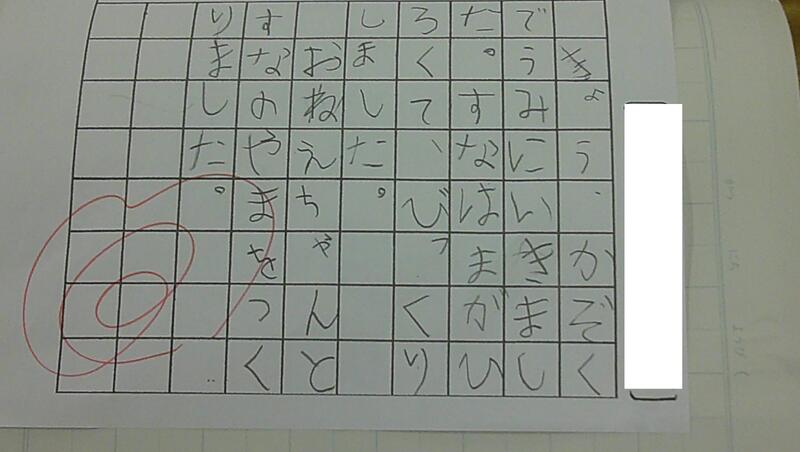 きょう、かぞく
でうみにいきまし
た。すなはまがひ
ろくて、びっくり
しました。
おねえちゃんと
すなのやまをつく
りました。